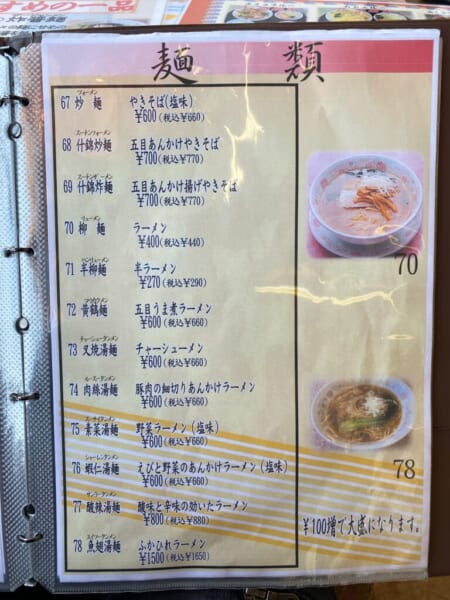 すめの一品
麺 類
フォーメン
67 炒 麺 やきそば(塩味)
¥600(税込¥660)
スードンフォーメン
68 什錦炒麺 五目あんかけやきそば
¥700(税込¥770)
69 什錦炸麺 五目あんかけ揚げやきそば
¥700(税込¥770)
リューメン
70 柳 麺 ラーメン
¥400(税込¥440)
ハンリューメン
71 半柳麺 半ラーメン
¥270(税込¥290)
72 黄鶴麺 五目うま煮ラーメン
¥600(税込¥660)
チャーシュータンメン
73 叉焼湯麺 チャーシューメン
¥600(税込¥660)
ルースータンメン
74 肉絲湯麺 豚肉の細切りあんかけラーメン
¥600(税込¥660)
スーサイタンメン
75 素菜湯麺 野菜ラーメン(塩味)
¥600(税込¥660)
シャーレンタンメン
76 蝦仁湯麺 えびと野菜のあんかけラーメン(塩味)
¥600(税込¥660)
サンラータンメン
77 酸辣湯麺 酸味と辛味の効いたラーメン
¥800(税込¥880)
スイツータンメン
78 魚翅湯麺 ふかひれラーメン
¥1500(税込¥1650)
70
78
¥100増で大盛になります。